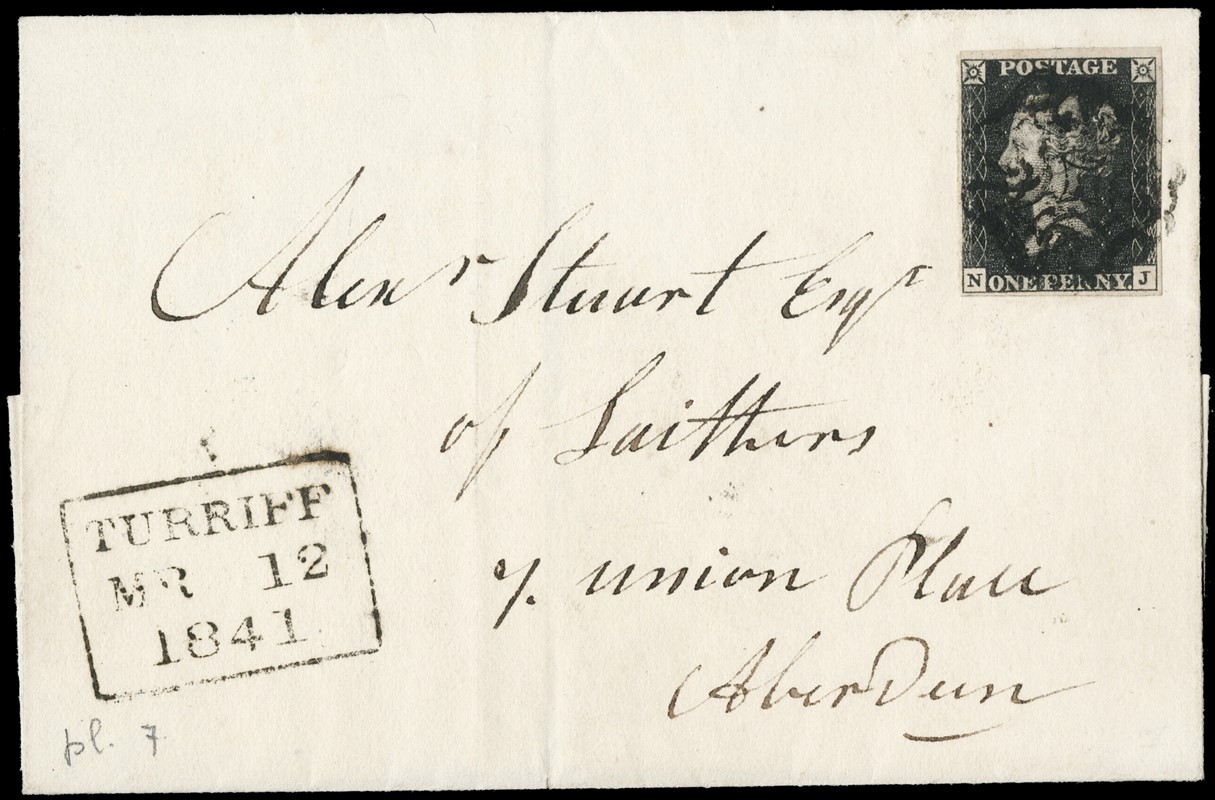 POSTAGE
N ONE PENNY J
Alexr Stuart Esqr
of Laithers
7. union Place
Aberdeen
TURRIFF
MR 12
1841
pl. 7